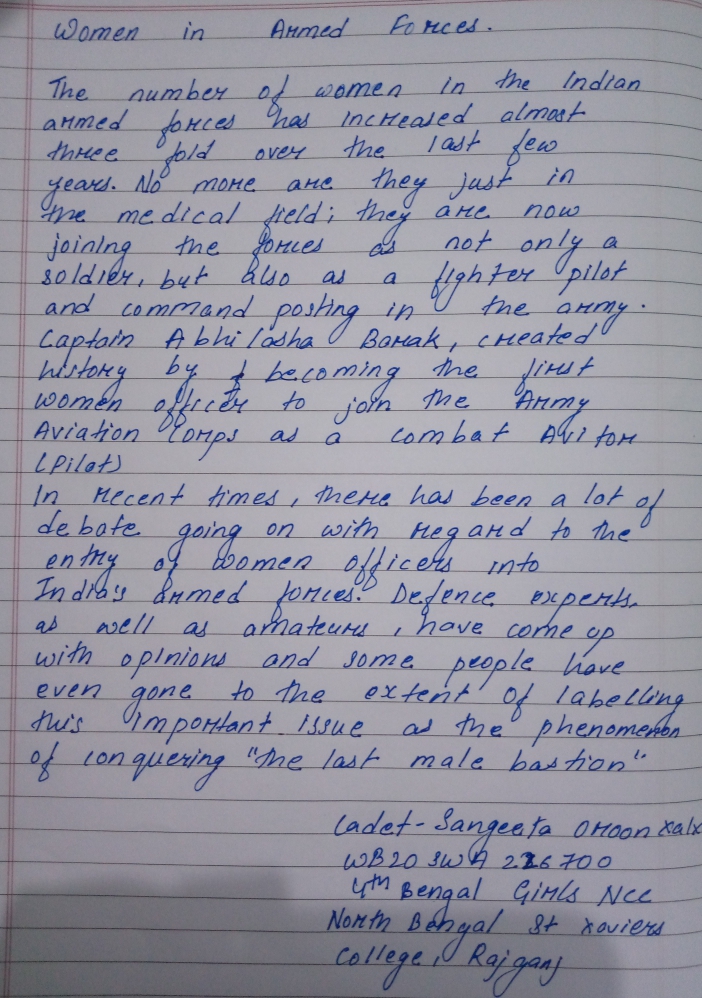 Women in Armed Forces.
The number of women in the Indian
armed forces has increased almost
three fold over the last few
years. No more are they just in
the medical field; they are now
joining the forces as not only a
soldier, but also as a fighter pilot
and command posting in the army.
Captain Abhilasha Barak, created
history by becoming the first
women officer to join the Army
Aviation Corps as a combat Avitor
(Pilot)
In recent times, there has been a lot of
debate going on with regard to the
entry of women officers into
India's armed forces. Defence experts,
as well as amateurs, have come up
with opinions and some people have
even gone to the extent of labelling
this important issue as the phenomenon
of conquering "the last male bastion"
Cadet- Sangeeta Oroon xalx
WB20 SWA 226700
4th Bengal Girls NCC
North Bengal St xaviers
College, Rajganj